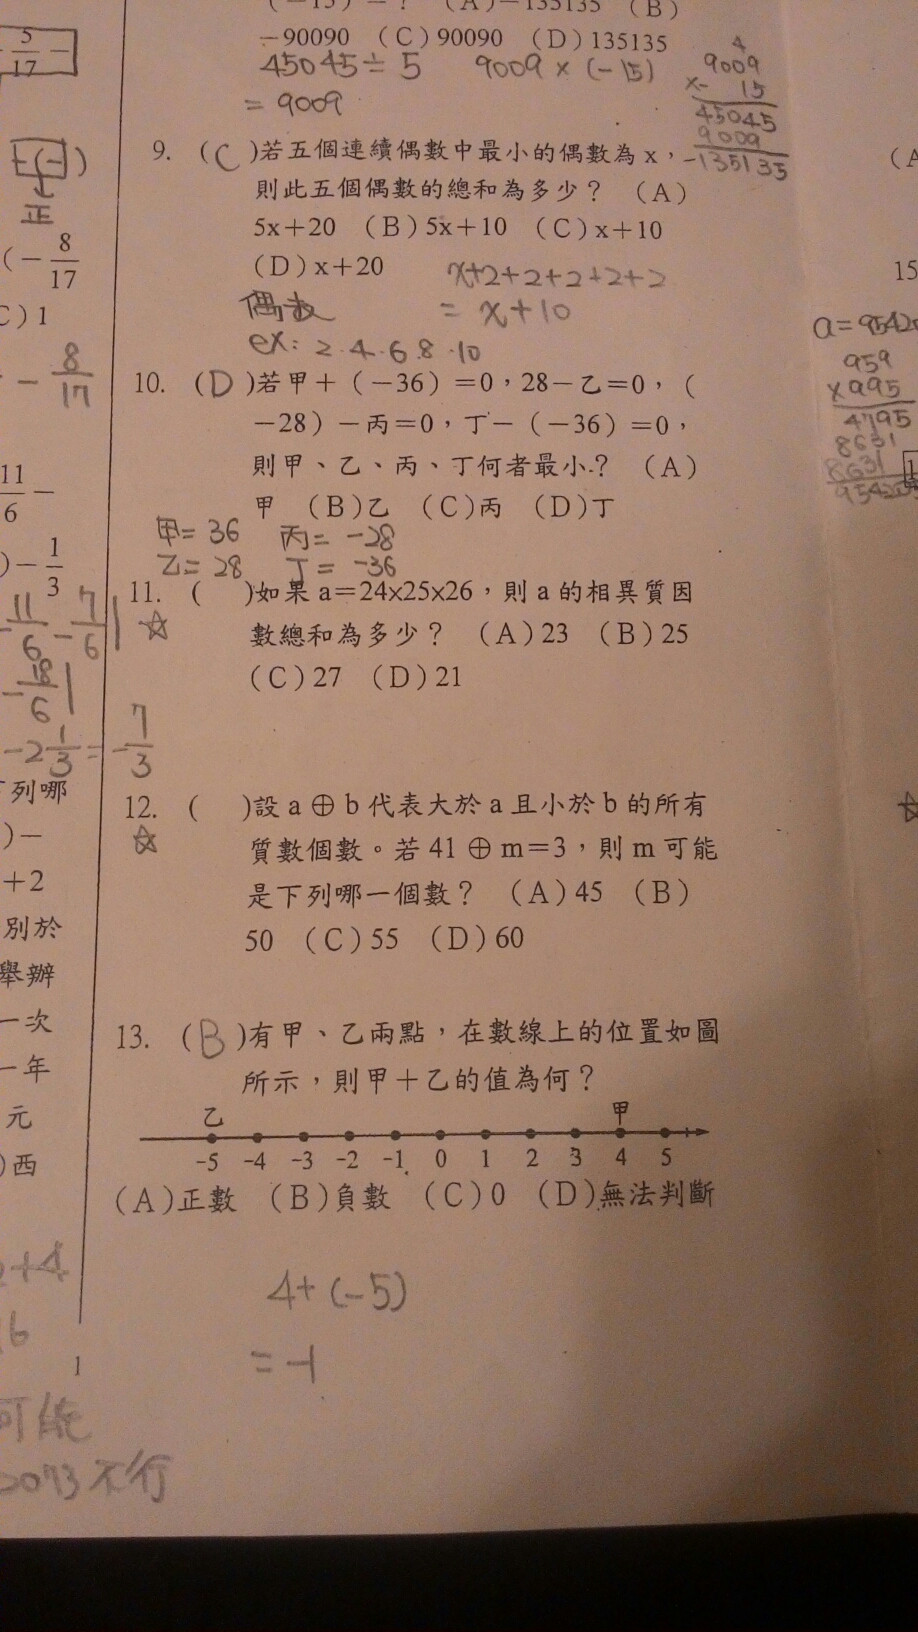 (－15)＝？ (A)－135135 (B)
－90090 (C)90090 (D)135135
45045÷5 9009×(-15)
= 9009
4
9009
×- 15
45045
9009
-135135
9. (C)若五個連續偶數中最小的偶數為x，
則此五個偶數的總和為多少？ (A)
5x＋20 (B)5x＋10 (C)x＋10
(D)x＋20
x+2+2+2+2+2
偶数 = x+10
ex: 2.4.6.8.10
10. (D)若甲＋(－36)＝0，28－乙＝0，(
－28)－丙＝0，丁－(－36)＝0，
則甲、乙、丙、丁何者最小？ (A)
甲 (B)乙 (C)丙 (D)丁
甲= 36 丙= -28
乙= 28 丁= -36
11. ( )如果a＝24x25x26，則a的相異質因
☆ 數總和為多少？ (A)23 (B)25
(C)27 (D)21
12. ( )設a⊕b代表大於a且小於b的所有
☆ 質數個數。若41⊕m＝3，則m可能
是下列哪一個數？ (A)45 (B)
50 (C)55 (D)60
13. (B)有甲、乙兩點，在數線上的位置如圖
所示，則甲＋乙的值為何？
乙 甲
-5 -4 -3 -2 -1 0 1 2 3 4 5
(A)正數 (B)負數 (C)0 (D)無法判斷
4+(-5)
= -1
5/17 －
-(-)
正
(－8/17
C)1
- 8/17
11/6 －
)－1/3
-11/6 - 7/6
-18/6
-2 1/3 = -7/3
下列哪
)－
＋2
別於
舉辦
一次
一年
元
)西
2+4
16
1
可能
2073不行
(A
15
a=9542
959
×995
4795
8631
8631